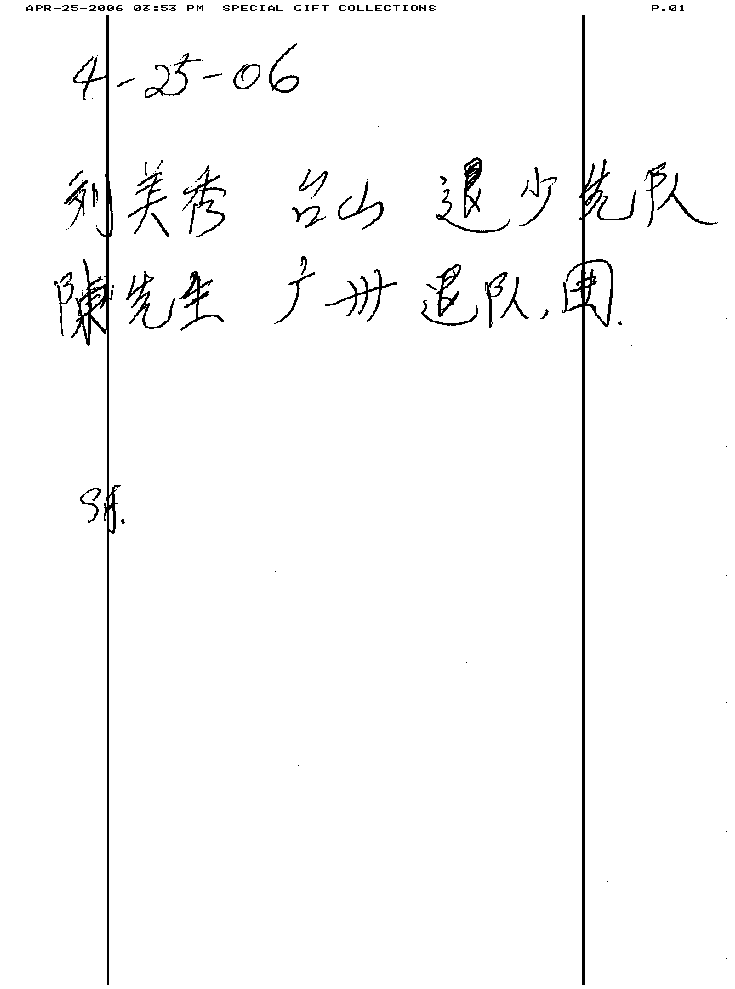 APR-25-2006 03:53 PM SPECIAL GIFT COLLECTIONS P.01
4-25-06
刘美秀 台山 退少先队
陳先生 广州 退队,团.